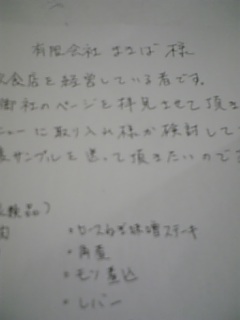 有限会社 まるば 様
食店を経営している者です。
御社のページを拝見させて頂き
ニューに取り入れ様か検討して
サンプルを送って頂きたいのでさ
検品)
・ロースねぎ味噌ステーキ
・角煮
・モツ煮込
・レバー